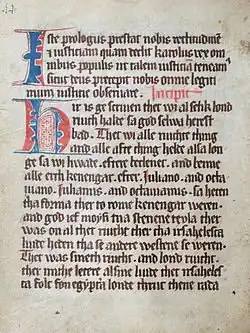 Iste prologus prestat nobis rectitudinem
et iusticiam quam decet karolus rex om
nibus populis ut talem iusticiam teneamus
sicut deus precepit nobis omne legiti
mum iusticie observare. Incipit
Hir is gescriuen thet wi al selik lond
riucht hake sa god selwa herst
bad. Thet wi alle riuchte thing
and alle afte thing heke alsa lon
ge sa wi liwade. efrest
erth kenengar. efter. Juliano. and octa
uiano. Juliamis. and octauiamis. sa heten
tha forma ther to rome kenengar weren.
and god ief moysi tua stenene tepla ther
was on al thet riucht ther tha israhelesca
liude heden tha se andere westene se weren.
Thet was sineth riucht. and lond riucht.
ther mithe lettere al sine liude ther israheles
ca folk fon egypta londe thruch thene rada